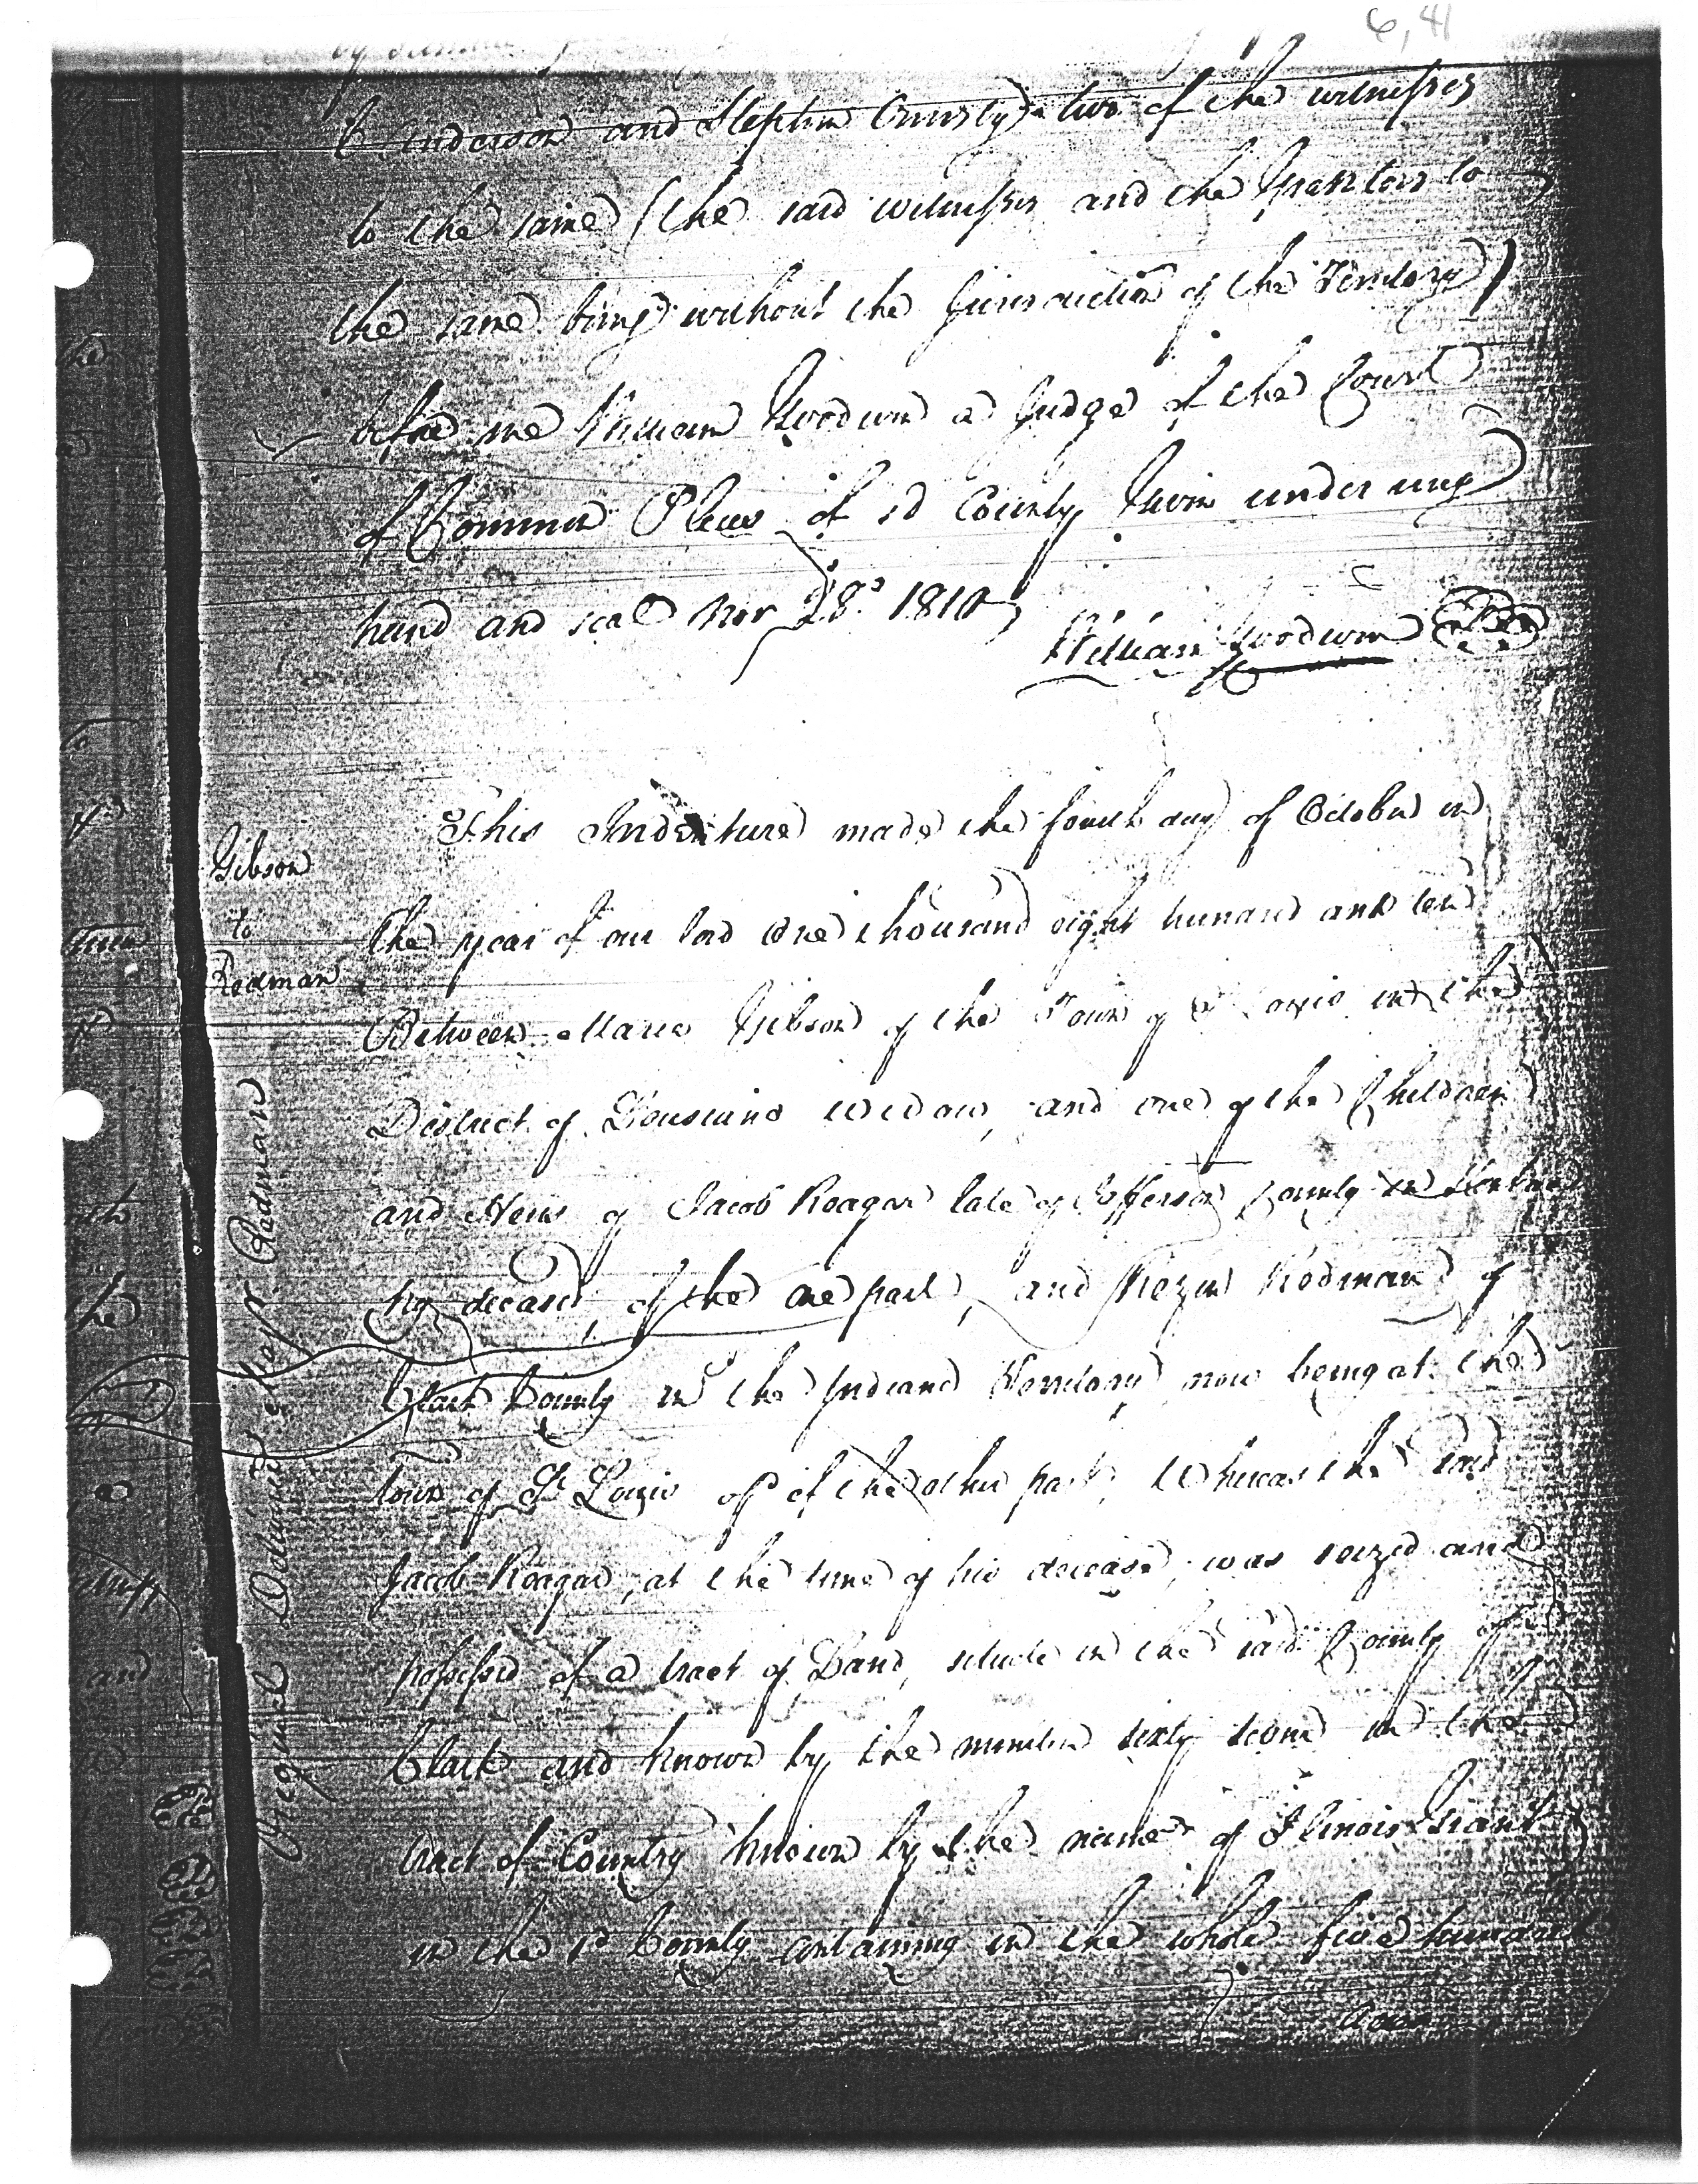 6, 41
Anderson and Stephen Ormsby two of the witnesses
to the same (the said witnesses and the Grantors to
the same being without the Jurisdiction of the Territory)
before me William Goodwin a Judge of the Court
of Common Pleas of sd County Given under my
hand and seal Nov 28th 1810
William Goodwin
This Indenture made the fourth day of October in
Gibson
to
Redman
the year of our lord one thousand eight hundred and ten
Between Marie Gibson of the Town of St Louis in the
District of Lousiana widow, and one of the Children
and Heirs of Jacob Reagar late of Jefferson County in Kentuc
ky deceased, of the one part, and Rezin Redman of
Clark County in the Indiana Territory now being at the
town of St Louis of the other part, Whereas the said
Jacob Reagar, at the time of his decease, was seized and
possessed of a tract of Land, situate in the said County of
Clark and known by the number sixty in the
tract of Country known by the name of Ilinois Grant
in the sd County containing in the whole five hundred
Redman